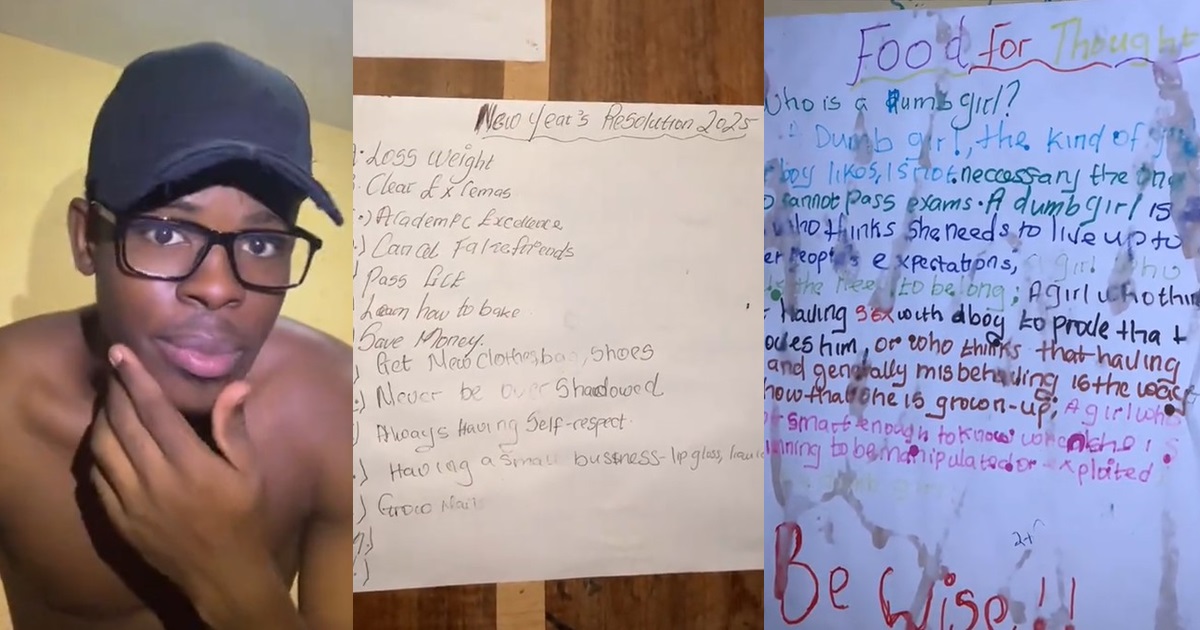 New Year's Resolution 2025
Loss weight
Clear Extremas
Academic Excellence
Cancel False friends
Pass
Learn how to bake
Save Money.
Get New clothes, bag, shoes
Never be over Shadowed
Always Having Self-respect.
Having a small business-lip gloss,
Grow Nails
Food for Thought
Who is a dumb girl?
Dumb girl, the kind of
boy likes, is not neccessary the one
cannot pass exams. A dumb girl is
who thinks she needs to live up to
people's expectations; a girl who
the need to belong; A girl who thin
Having sex with a boy to prove that
loves him, or who thinks that having
and generally misbehaving is the way
how that she is grown-up; A girl who
smart enough to know when she is
nning to be manipulated or exploited
Be Wise!!